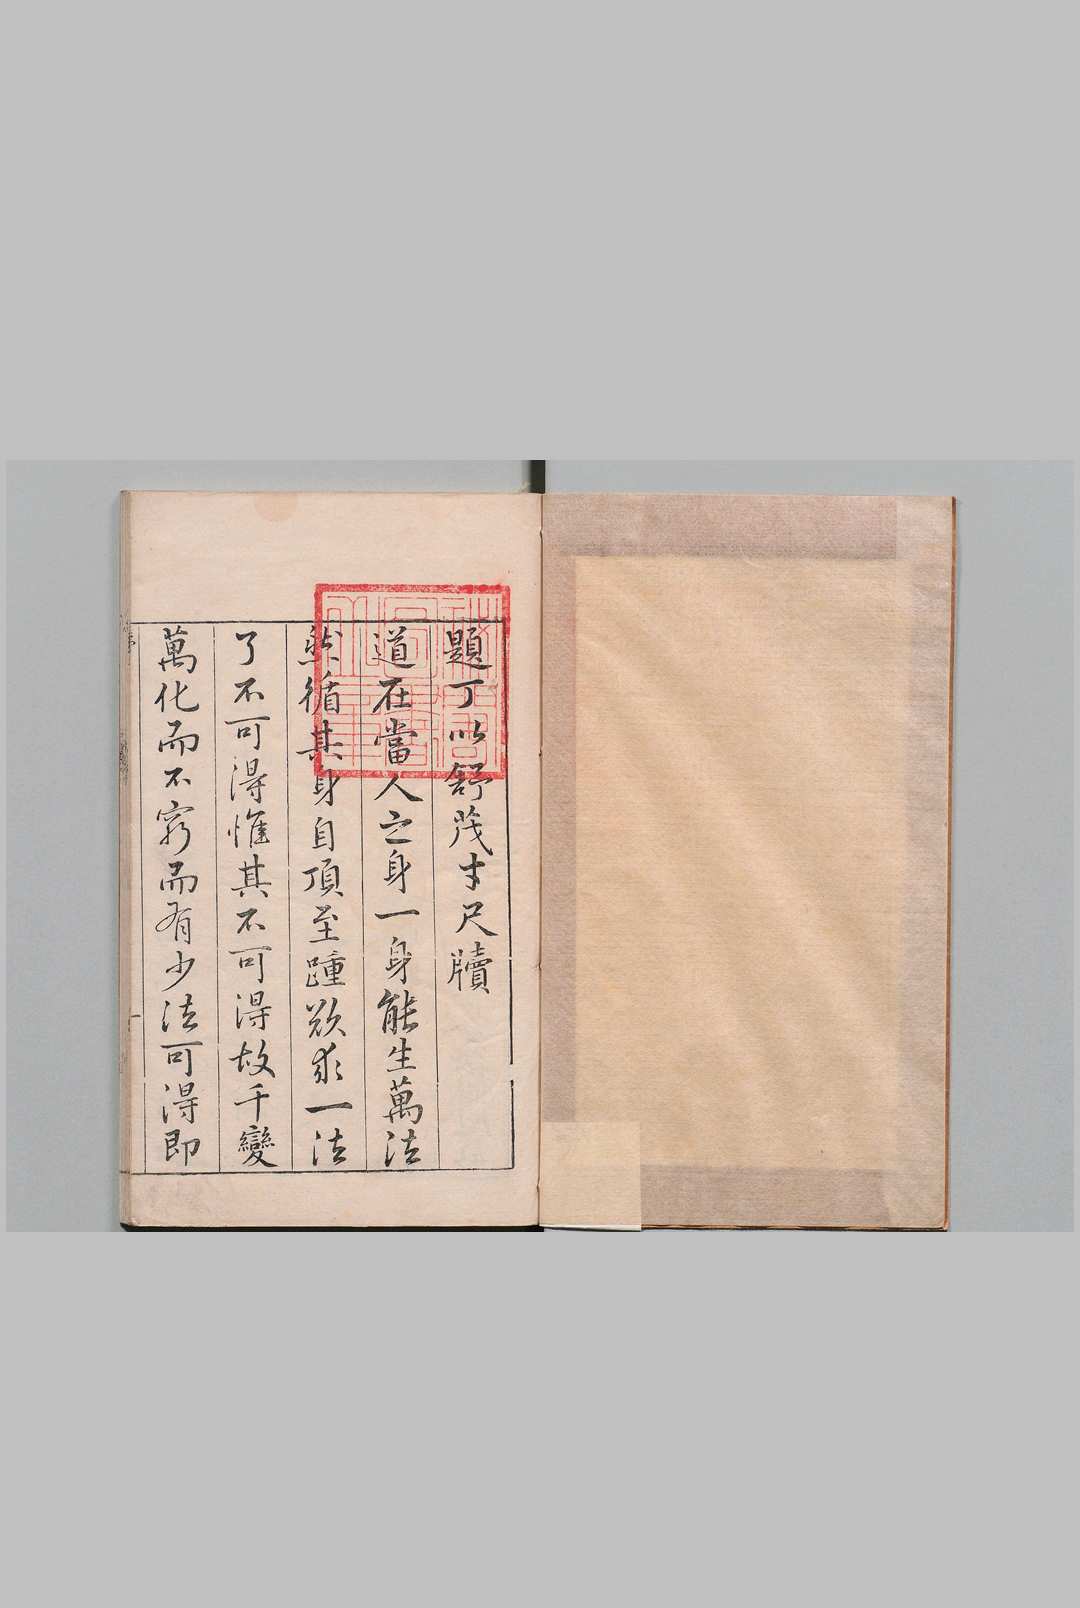 題丁以舒茂才尺牘
道在當人之身一身能生萬法
然循其身自頂至踵欲求一法
了不可得惟其不可得故千變
萬化而不窮而有少法可得即